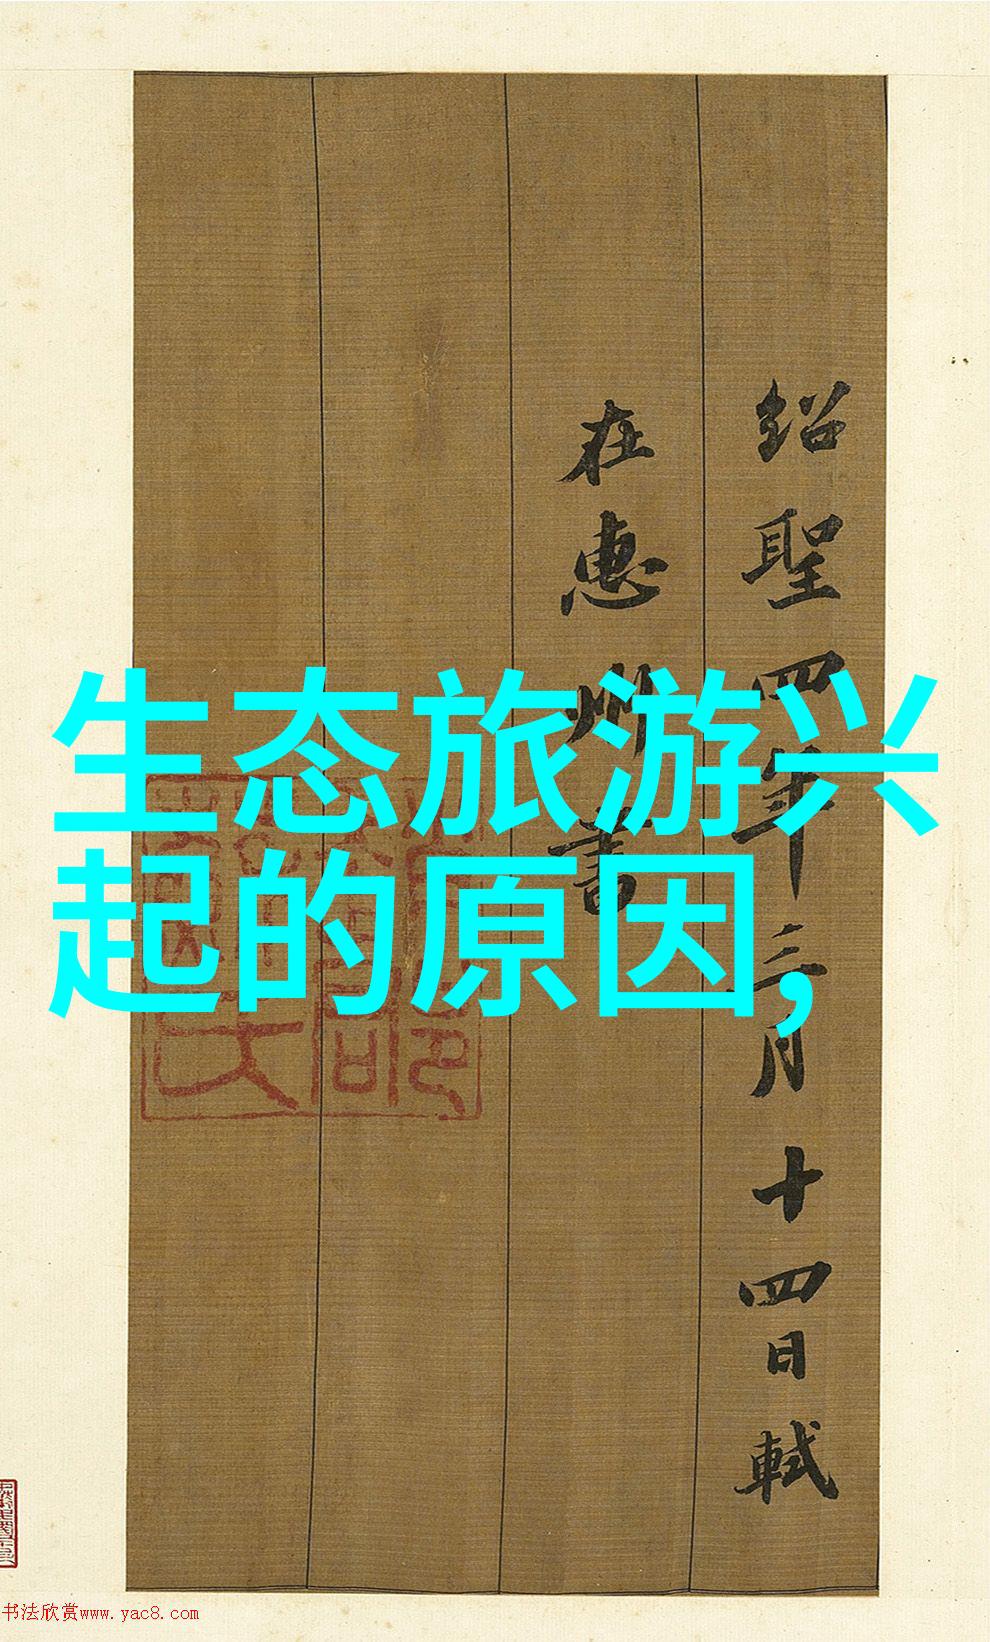 生态旅游兴
起的原因,
紹聖四年三月十四日軾
在惠州書
书法欣赏www.yac8.com